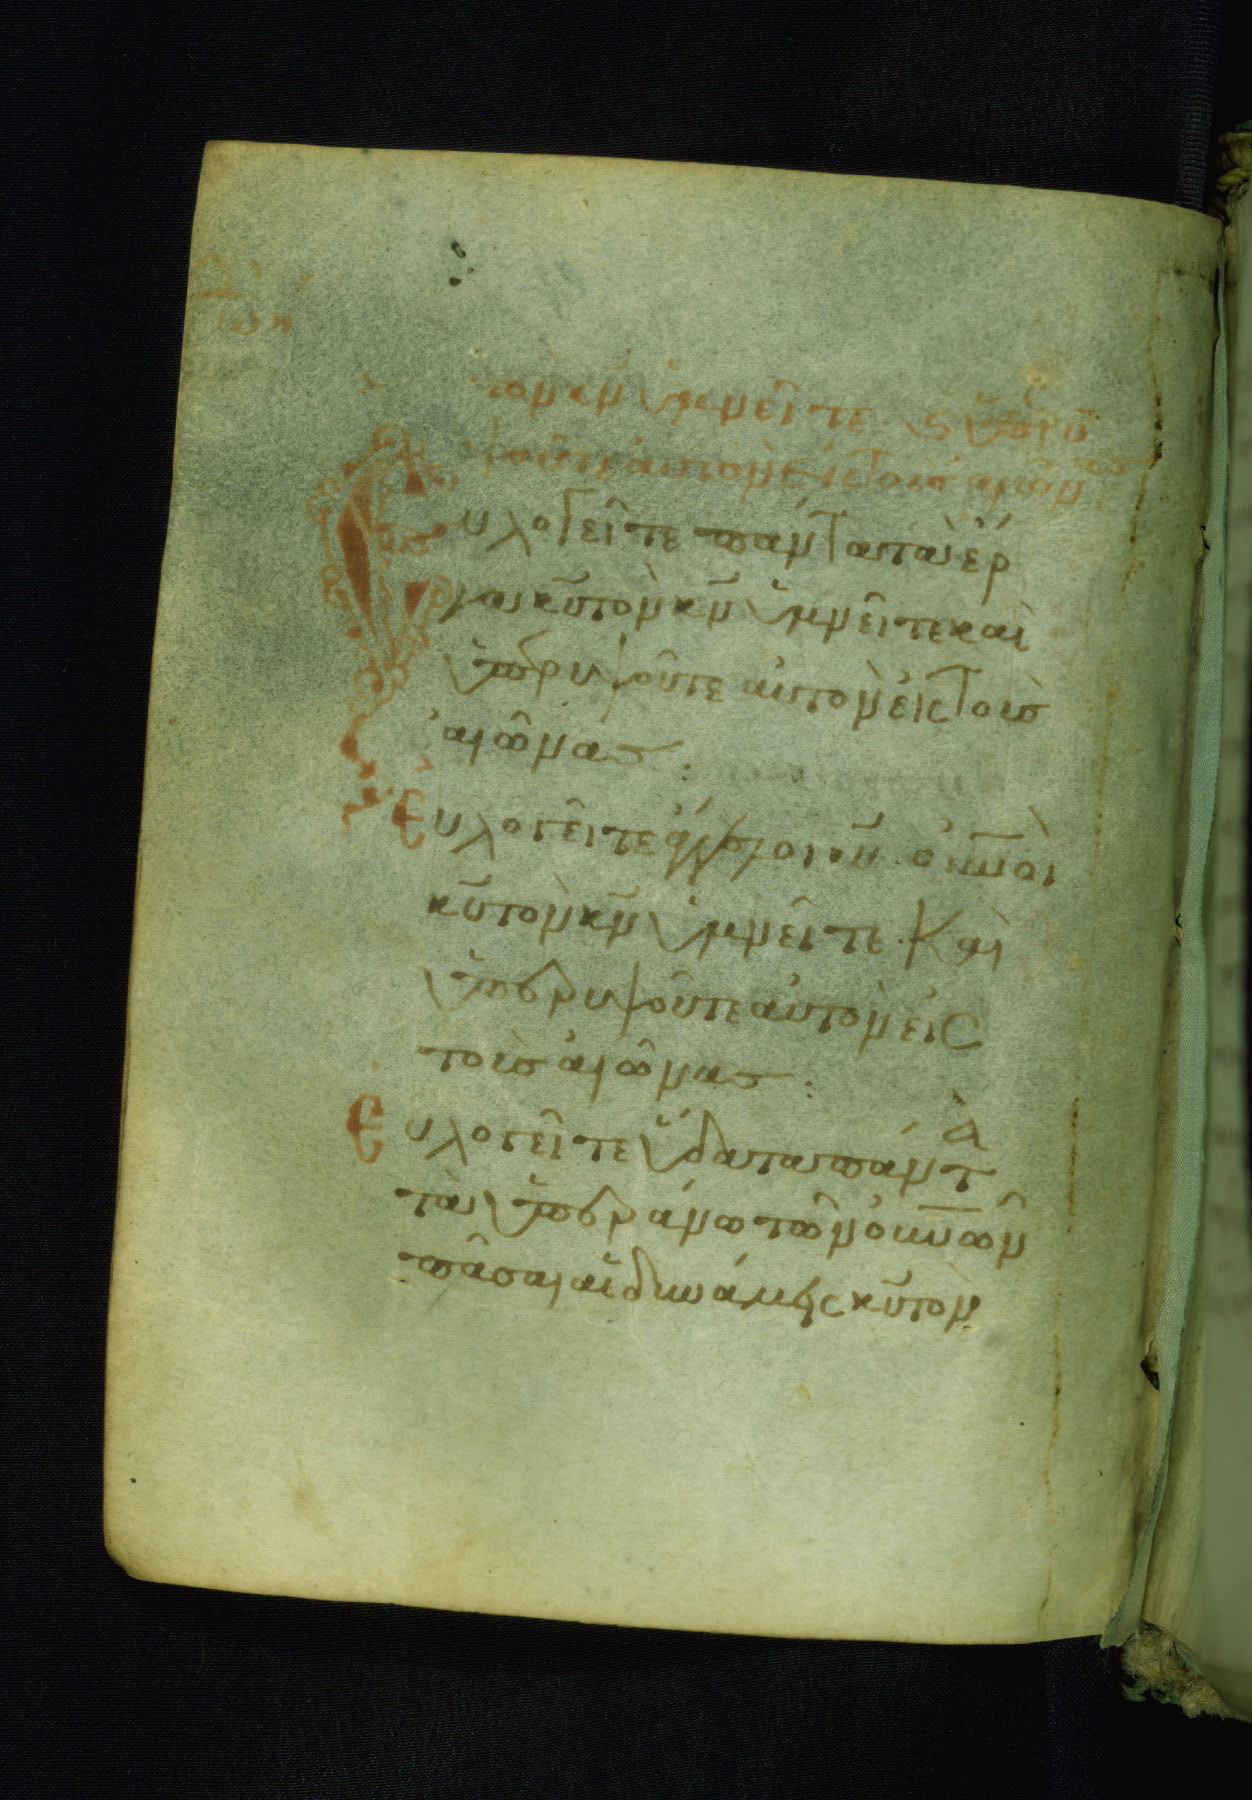 τον κ̅ν̅ ὑμνεῖτε· ϗ ὑπερυ
ψοῦτε αὐτὸν εἰς τοὺς αἰῶνας
Εὐλογεῖτε πάντα τὰ ἔρ
γα κ̅υ̅ τὸν κ̅ν̅ ὑμνεῖτε καὶ
ὑπερυψοῦτε αὐτὸν εἰς τοὺς
αἰῶνας :
Εὐλογεῖτε ἄγγελοι κ̅υ̅ οὐ̅νο̅ὶ
κ̅υ̅ τὸν κ̅ν̅ ὑμνεῖτε· καὶ
ὑπερυψοῦτε αὐτὸν εἰς
τοὺς αἰῶνας :
Εὐλογεῖτε ὕδατα πάντα
τὰ ὑπεράνω τῶν οὐ̅νῶ̅ν
πᾶσαι αἱ δυνάμεις κ̅υ̅ τὸν